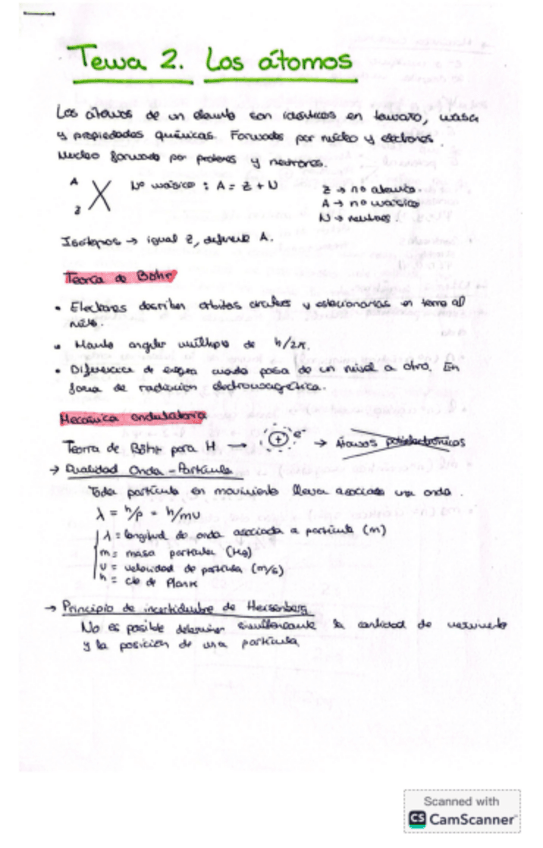 Tema 2. Los átomos
Los átomos de un elemento son idénticos en tamaño, masa
y propiedades químicas. Formados por núcleo y electrones.
Núcleo formado por protones y neutrones.
A
Z X Nº másico : A = Z + N
Z → nº atómico.
A → nº másico
N → neutrones.
Isótopos → igual Z, diferente A.
Teoría de Böhr
• Electrones describen órbitas circulares y estacionarias en torno al
núcleo.
• Momento angular múltiplo de h/2π.
• Diferencia de energía cuando pasa de un nivel a otro. En
forma de radiación electromagnética.
Mecánica ondulatoria
Teoría de Böhr para H → + e⁻ → Átomos polielectrónicos
→ Dualidad Onda-Partícula
Toda partícula en movimiento lleva asociada una onda.
λ = h/p = h/mv
λ = longitud de onda asociada a partícula (m)
m = masa partícula (Kg)
v = velocidad de partícula (m/s)
h = cte de Plank
→ Principio de incertidumbre de Heisenberg
No es posible determinar simultáneamente la cantidad de movimiento
y la posición de una partícula
Scanned with
CS CamScanner